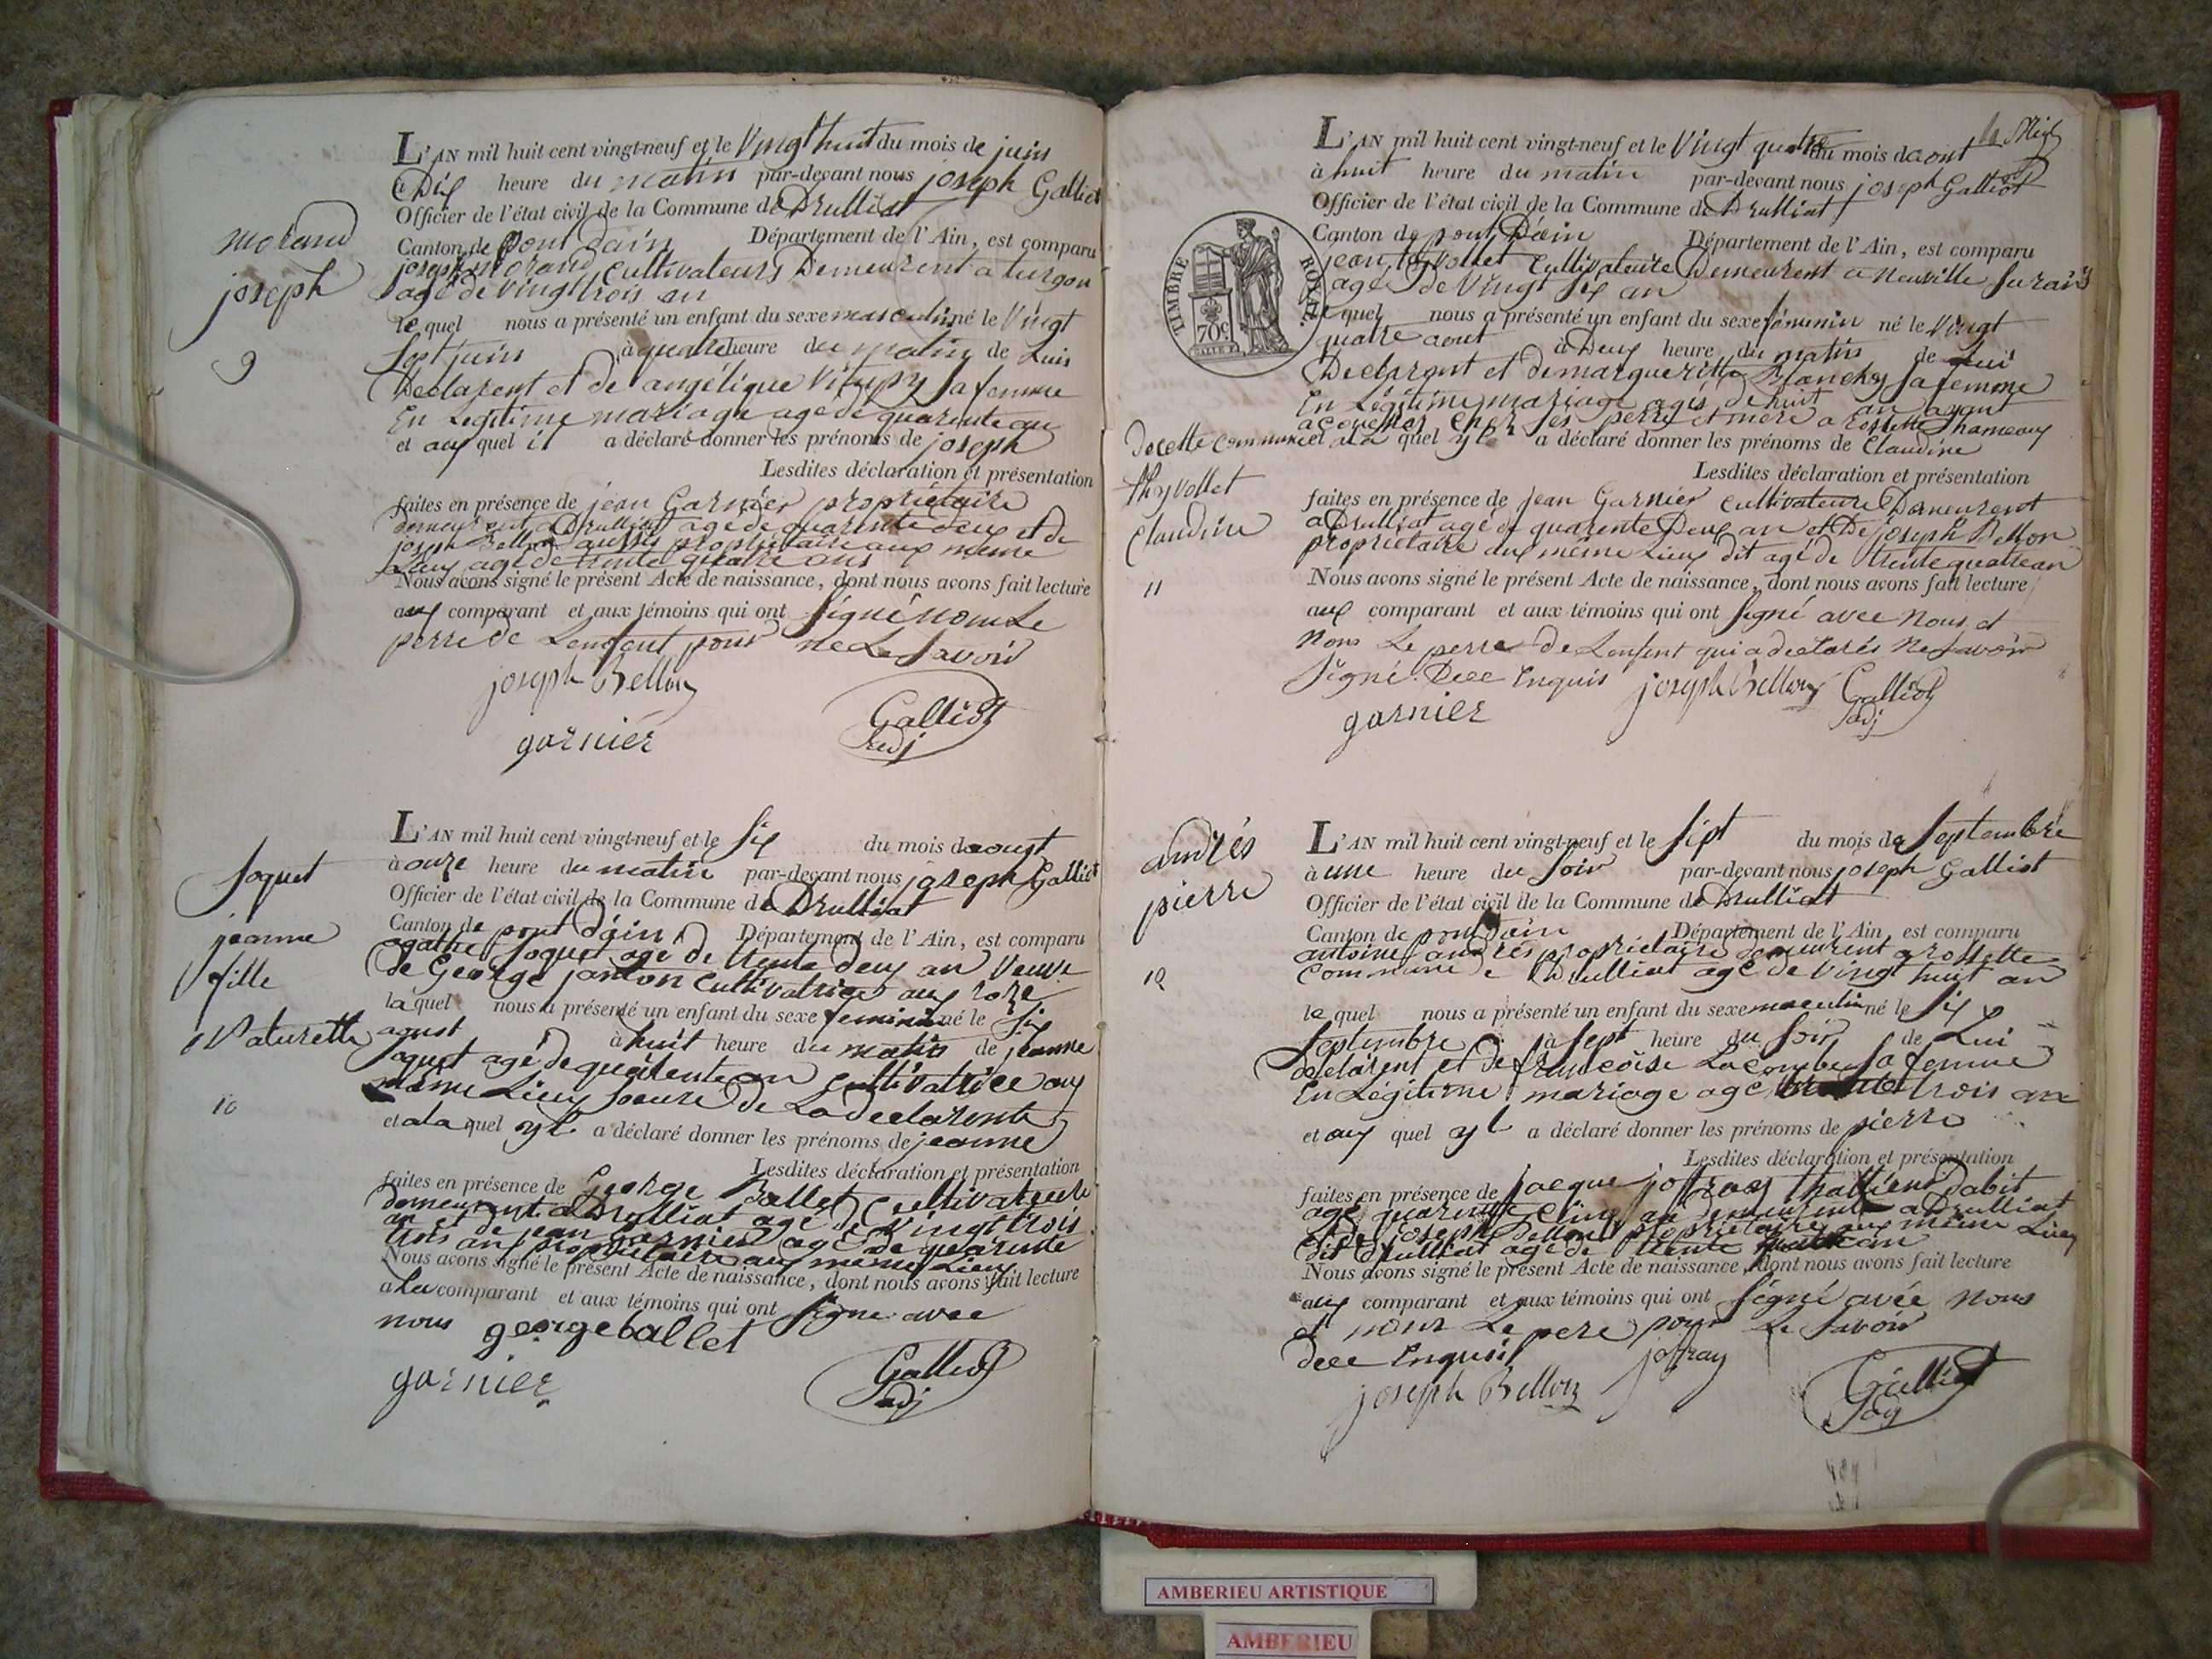 morand
joseph
9
L'AN mil huit cent vingt-neuf et le Vingt huit du mois de juin
à Dix heure du matin par-devant nous joseph Galliot
Officier de l'état civil de la Commune de Drulliat
Canton de pont dain Département de l'Ain, est comparu
joseph morand Cultivateurs Demeurent a turgon
agé de vingt trois an
le quel nous a présenté un enfant du sexe masculin né le Vingt
sept juin à quatre heure du matin de Luis
Declarent et de angélique Vitupy sa femme
En Legitime mariage agé de quarente an
et aux quel il a déclaré donner les prénoms de joseph
Lesdites déclaration et présentation
faites en présence de jean Garnier propriétaire
demeurent a Drulliat agé de quarente deux et de
joseph Bellon aussis propriétaire aux meme
Lieux agé de trente quatre ans
Nous avons signé le présent Acte de naissance, dont nous avons fait lecture
aux comparant et aux témoins qui ont signé non Le
perre de Lenfent pour ne Le savoir
joseph Bellon
garnier
Galliot
adj
Soquet
jeanne
fille
Naturelle
10
L'AN mil huit cent vingt-neuf et le Six du mois de aoust
à onze heure du matin par-devant nous joseph Galliot
Officier de l'état civil de la Commune de Drulliat
Canton de pont dain Département de l'Ain, est comparu
agathe Soquet agé de trente deux an Veuve
de George janton Cultivatrice aux roze
la quel nous a présenté un enfant du sexe feminin né le Six
agust à huit heure du matin de jeanne
Soquet agé de quarente an cultivatrice aux
même Lieux Soeure de La declarente
et a la quel yl a déclaré donner les prénoms de jeanne
Lesdites déclaration et présentation
faites en présence de George Ballet Cultivateure
demeurent a Drulliat agé de Vingt trois
an et de jean Garnier agé de quarente
trois ans propriétaire aux meme Lieux
Nous avons signé le présent Acte de naissance, dont nous avons fait lecture
a La comparant et aux témoins qui ont signé avec
nous george ballet
garnier
Galliot
adj
TIMBRE ROYAL
70c
L'AN mil huit cent vingt-neuf et le Vingt quatre du mois daout
à huit heure du matin par-devant nous joseph Galliot
Officier de l'état civil de la Commune de Drulliat
Canton de pont Dain Département de l'Ain, est comparu
jean thyvollet Cultivateure Demeurent a Neuville Surains
agé de Vingt six an
le quel nous a présenté un enfant du sexe féminin né le Vingt
quatre aout à Deux heure du matin de Lui
Declarent et de marguerite Blanche sa femme
En Légitime mariage agés de huit an ayant
acouchés Chez ses perre et mere a rossette hameaux
docette commune et a la quel yl a déclaré donner les prénoms de Claudine
thyvollet
Claudine
11
Lesdites déclaration et présentation
faites en présence de jean Garnier Cultivateure Demeurent
a Drulliat agé de quarente Deux an et De joseph Bellon
propriétaire aux même Lieux dit agé de trente quatre an
Nous avons signé le présent Acte de naissance, dont nous avons fait lecture
aux comparant et aux témoins qui ont signé avec nous et
Non Le perre De Lenfent qui a declarés ne savoir
Signé Dece Enquis joseph Bellon Galliot
garnier
adj
andrés
pierre
12
L'AN mil huit cent vingt-neuf et le sept du mois de Septembre
à une heure du Soir par-devant nous joseph Galliot
Officier de l'état civil de la Commune de Drulliat
Canton de pont dain Département de l'Ain, est comparu
antoine andrés propriétaire demeurent a rossette
Commune de Drulliat agé de vingt huit an
le quel nous a présenté un enfant du sexe masculin né le six
Septembre à sept heure du Soir de Lui
declarent et de francoise Lacombe sa femme
En Légitime mariage agé trois an
et aux quel yl a déclaré donner les prénoms de pierre
Lesdites déclaration et présentation
faites en présence de jacque joffray Dabit
agé quarente Cinq an demeurent a Drulliat
et de joseph Bellon propriétaire aux même Lieu
dit Drulliat agé de trente quatre an
Nous avons signé le présent Acte de naissance, dont nous avons fait lecture
aux comparant et aux témoins qui ont signé avec nous
et non Le pere pour Le savoir
dece Enquis joffray
joseph Bellon
Galliot
adj
AMBERIEU ARTISTIQUE
AMBERIEU